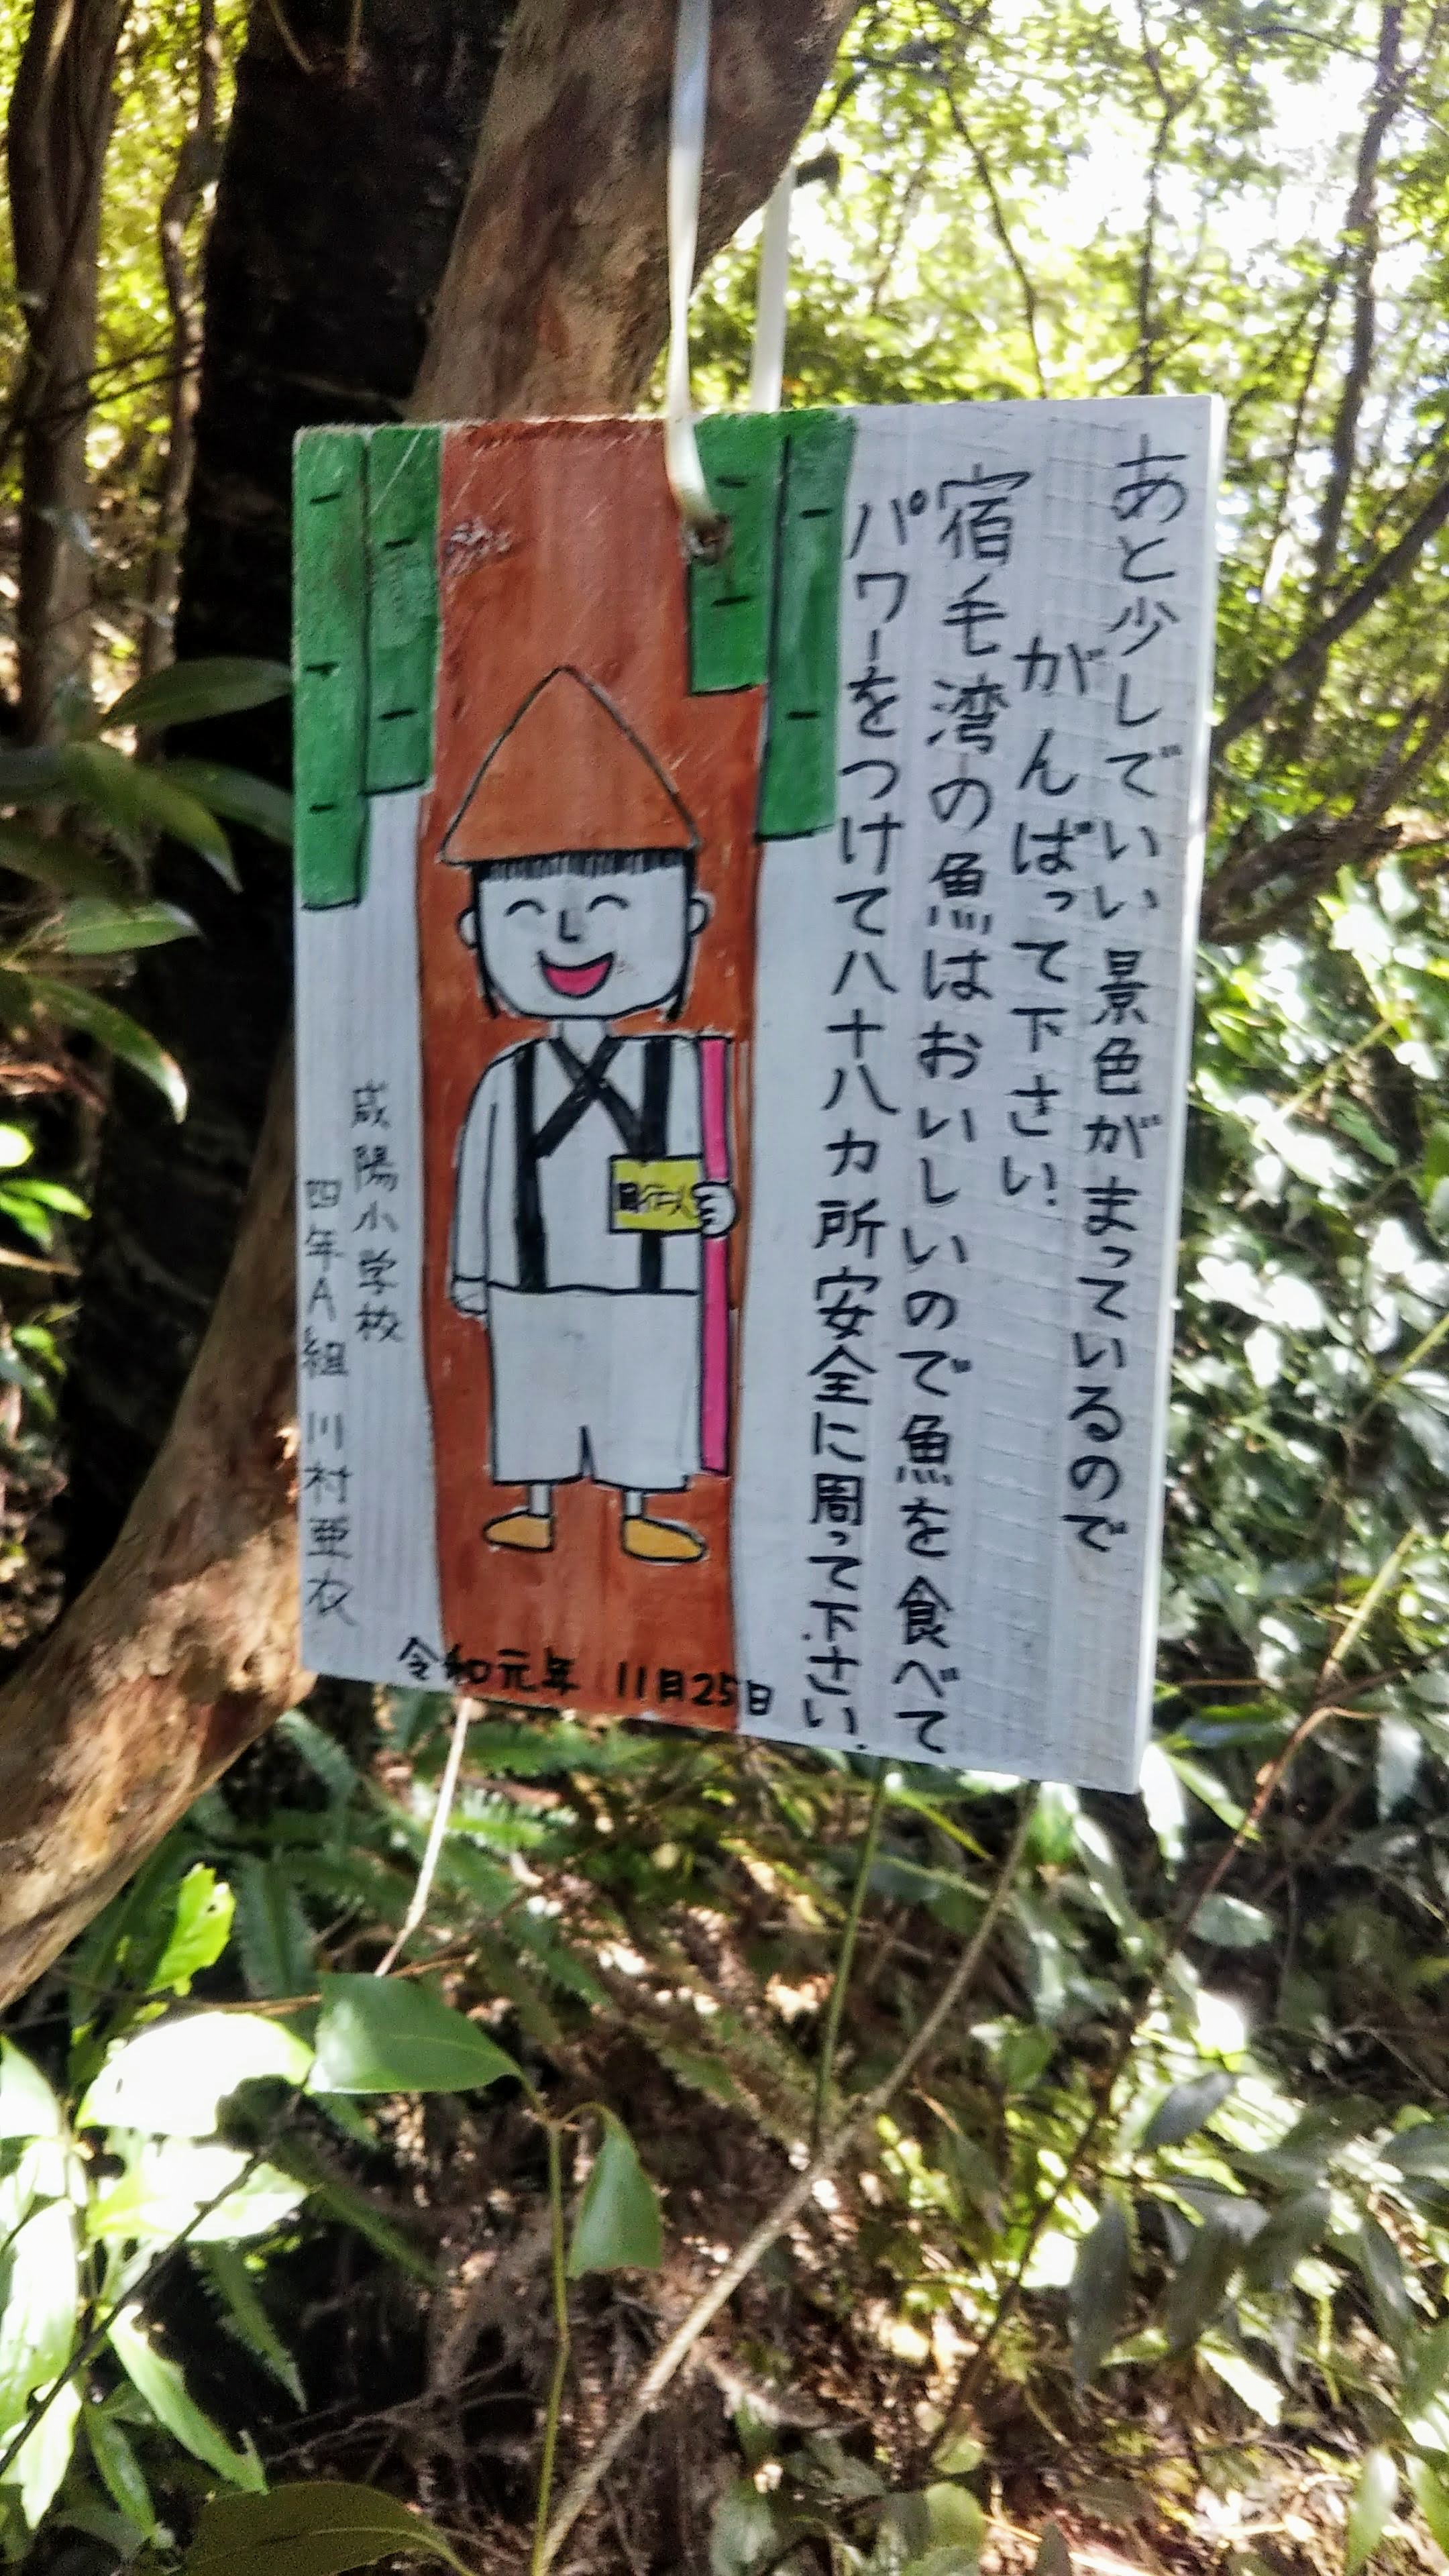 あと少しでいい景色がまっているので
がんばって下さい.
宿毛湾の魚はおいしいので魚を食べて
パワーをつけて八十八カ所安全に周って下さい.
同行二人
咸陽小学校
四年A組 川村亜衣
令和元年 11月25日